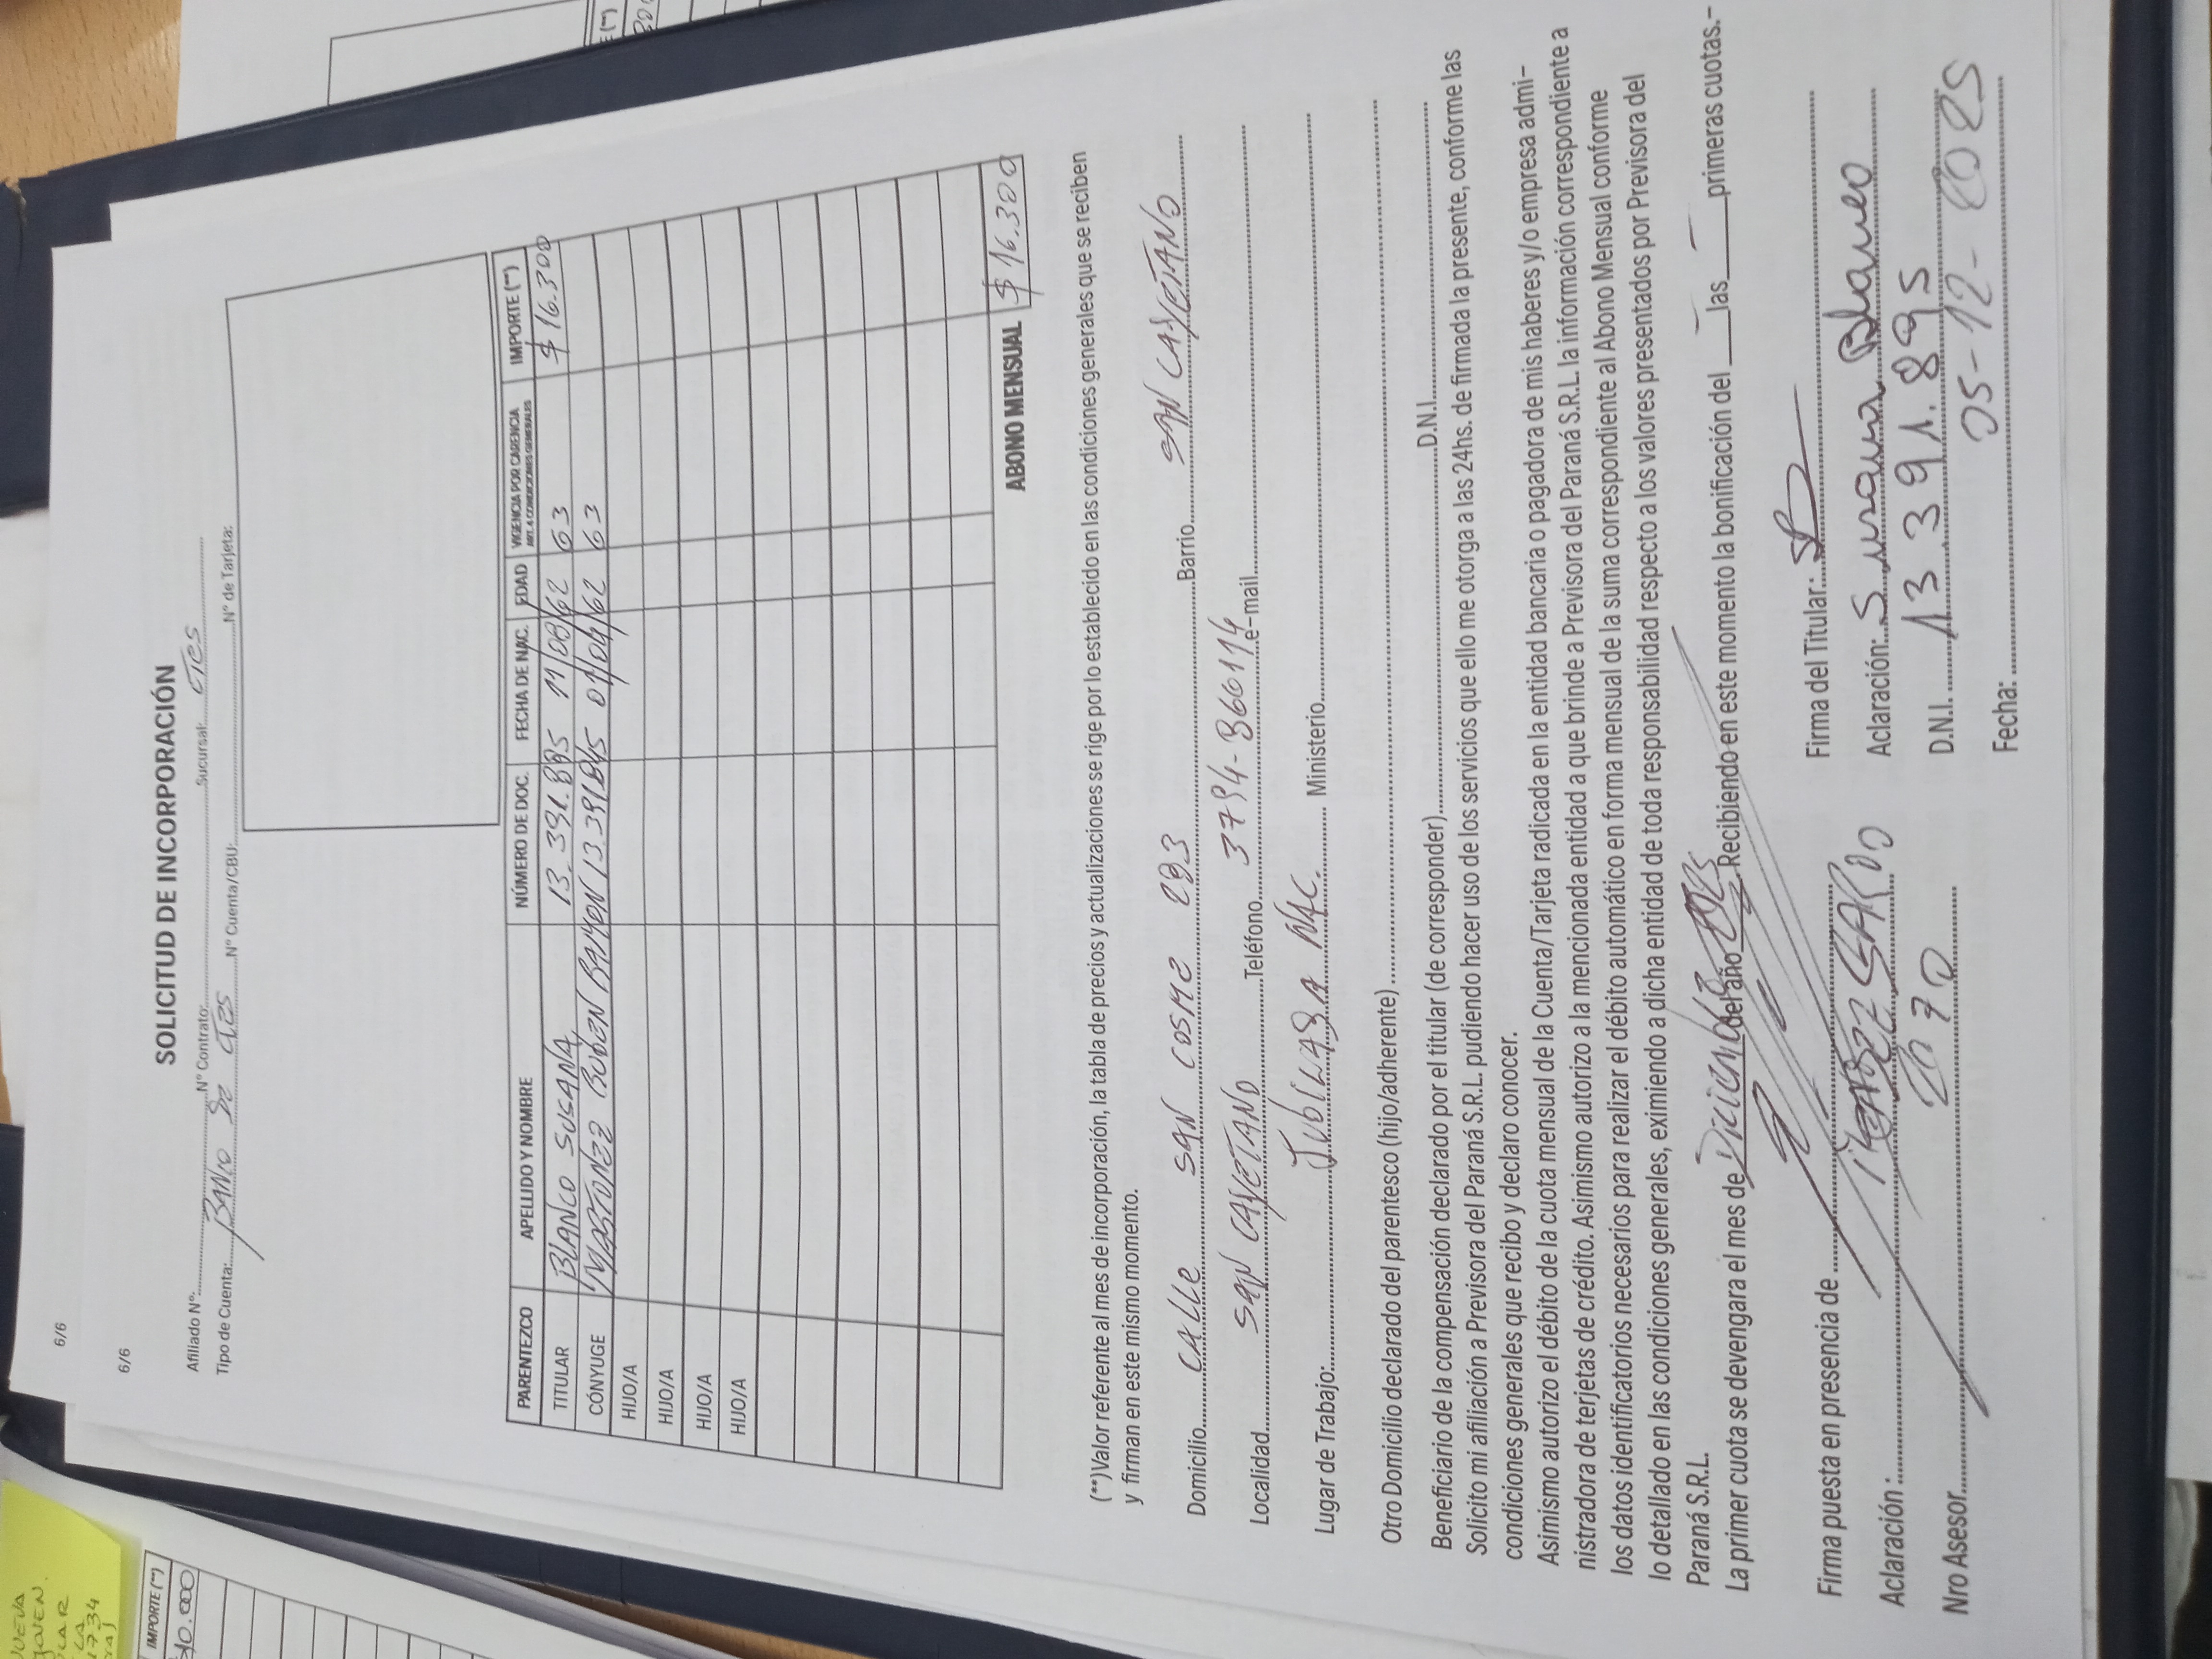 6/6
6/6
SOLICITUD DE INCORPORACIÓN
Afiliado Nº: Nº Contrato: Sucursal: CTES
Tipo de Cuenta: BANCO DE CTES Nº Cuenta/CBU: Nº de Tarjeta:
PARENTEZCO APELLIDO Y NOMBRE NÚMERO DE DOC. FECHA DE NAC. EDAD VIGENCIA POR CARENCIA IMPORTE (**)
TITULAR BLANCO SUSANA 13.391.895 11/08/62 63 $ 16.300
CÓNYUGE RUBEN RAMON 01/04/62 63
HIJO/A
HIJO/A
HIJO/A
HIJO/A
ABONO MENSUAL $ 16.300
(**)Valor referente al mes de incorporación, la tabla de precios y actualizaciones se rige por lo establecido en las condiciones generales que se reciben
y firman en este mismo momento.
Domicilio CALLE SAN COSME 283 Barrio SAN CAYETANO
Localidad SAN CAYETANO Teléfono 3794-866114 e-mail
Lugar de Trabajo: JUBILADA NAC. Ministerio
Otro Domicilio declarado del parentesco (hijo/adherente)
Beneficiario de la compensación declarado por el titular (de corresponder) D.N.I.
Solicito mi afiliación a Previsora del Paraná S.R.L. pudiendo hacer uso de los servicios que ello me otorga a las 24hs. de firmada la presente, conforme las
condiciones generales que recibo y declaro conocer.
Asimismo autorizo el débito de la cuota mensual de la Cuenta/Tarjeta radicada en la entidad bancaria o pagadora de mis haberes y/o empresa admi-
nistradora de terjetas de crédito. Asimismo autorizo a la mencionada entidad a que brinde a Previsora del Paraná S.R.L. la información correspondiente a
los datos identificatorios necesarios para realizar el débito automático en forma mensual de la suma correspondiente al Abono Mensual conforme
lo detallado en las condiciones generales, eximiendo a dicha entidad de toda responsabilidad respecto a los valores presentados por Previsora del
Paraná S.R.L.
La primer cuota se devengara el mes de Diciembre del año 2025 Recibiendo en este momento la bonificación del las primeras cuotas.-
Firma puesta en presencia de Firma del Titular:
Aclaración: Aclaración: Susana Blanco
Nro Asesor 2070 D.N.I. 13.391.895
Fecha: 05-12-2025
IMPORTE (**)